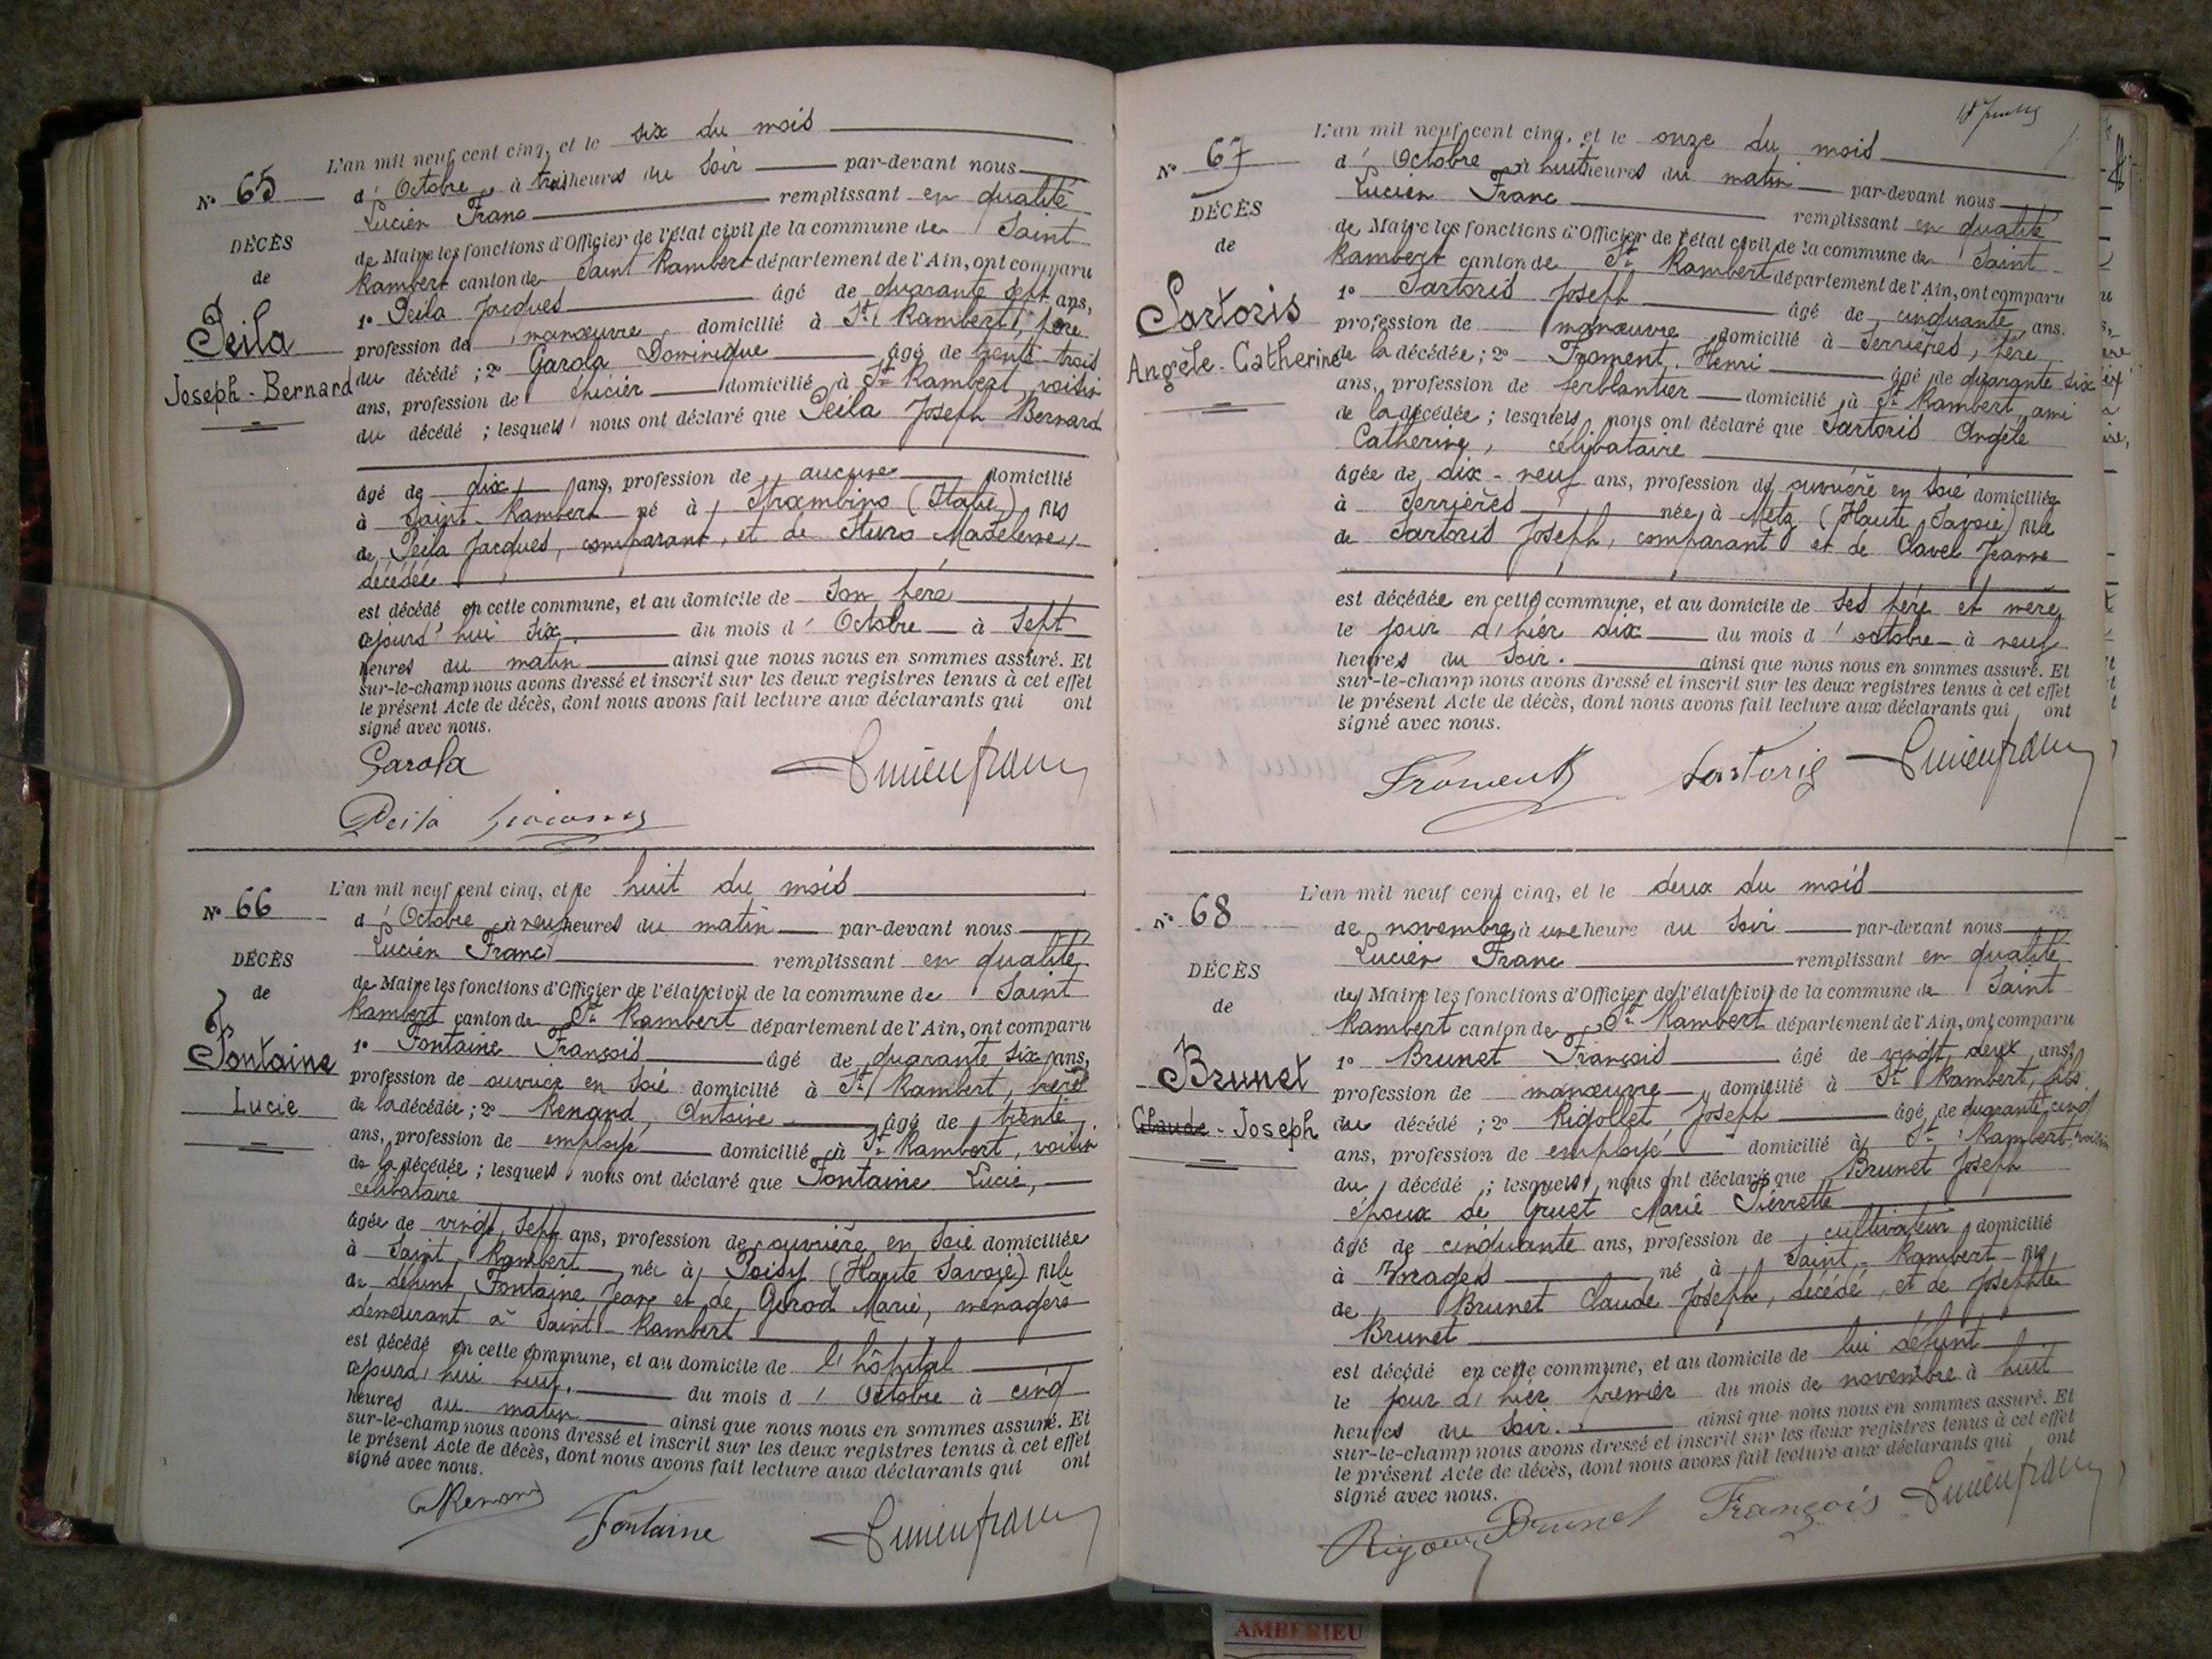 N° 65
DÉCÈS
de
Peila
Joseph-Bernard
L'an mil neuf cent cinq, et le six du mois
d'Octobre à trois heures du soir par-devant nous
Lucien Franc remplissant en qualité
de Maire les fonctions d'Officier de l'état civil de la commune de Saint
Rambert canton de Saint Rambert département de l'Ain, ont comparu
1° Peila Jacques âgé de quarante sept ans,
profession de manœuvre domicilié à St Rambert, père
du décédé ; 2° Garola Dominique âgé de trente trois
ans, profession de épicier domicilié à St Rambert, voisin
du décédé ; lesquels nous ont déclaré que Peila Joseph Bernard
âgé de dix ans, profession de aucune domicilié
à Saint-Rambert né à Strambino (Italie) fils
de Peila Jacques, comparant, et de Stura Madeleine,
décédée
est décédé en cette commune, et au domicile de son père
ajourd'hui six. du mois d'Octobre à sept
heures du matin ainsi que nous nous en sommes assuré. Et
sur-le-champ nous avons dressé et inscrit sur les deux registres tenus à cet effet
le présent Acte de décès, dont nous avons fait lecture aux déclarants qui ont
signé avec nous.
Garola Lucienfranc
Peila Giacomo
N° 66
DÉCÈS
de
Fontaine
Lucie
L'an mil neuf cent cinq, et le huit du mois
d'Octobre à neuf heures du matin par-devant nous
Lucien Franc remplissant en qualité
de Maire les fonctions d'Officier de l'état civil de la commune de Saint
Rambert canton de St Rambert département de l'Ain, ont comparu
1° Fontaine François âgé de quarante six ans,
profession de ouvrier en soie domicilié à St Rambert, frère
de la décédée ; 2° Renand, Antoine âgé de trente
ans, profession de employé domicilié à St Rambert, voisin
de la décédée ; lesquels nous ont déclaré que Fontaine Lucie,
célibataire
âgée de vingt sept ans, profession de ouvrière en soie domiciliée
à Saint-Rambert née à Poisy (Haute Savoie) fille
de défunt Fontaine Jean et de Gerod Marie, ménagère
demeurant à Saint-Rambert
est décédé en cette commune, et au domicile de l'hôpital
ajourd'hui huit. du mois d'Octobre à cinq
heures du matin ainsi que nous nous en sommes assuré. Et
sur-le-champ nous avons dressé et inscrit sur les deux registres tenus à cet effet
le présent Acte de décès, dont nous avons fait lecture aux déclarants qui ont
signé avec nous.
Renand Fontaine Lucienfranc
N° 67
DÉCÈS
de
Sartoris
Angèle-Catherine
L'an mil neuf cent cinq, et le onze du mois
d'Octobre à huit heures du matin par-devant nous
Lucien Franc remplissant en qualité
de Maire les fonctions d'Officier de l'état civil de la commune de Saint
Rambert canton de St Rambert département de l'Ain, ont comparu
1° Sartoris Joseph âgé de cinquante ans.
profession de manœuvre domicilié à Serrières, père
de la décédée ; 2° Froment, Henri âgé de quarante six
ans, profession de ferblantier domicilié à St Rambert, ami
de la décédée ; lesquels nous ont déclaré que Sartoris Angèle
Catherine, célibataire
âgée de dix-neuf ans, profession de ouvrière en soie domiciliée
à Serrières née à Metz (Haute Savoie) fille
de Sartoris Joseph, comparant et de Clavel Jeanne
est décédée en cette commune, et au domicile de ses père et mère
le jour d'hier dix du mois d'octobre à neuf
heures du soir. ainsi que nous nous en sommes assuré. Et
sur-le-champ nous avons dressé et inscrit sur les deux registres tenus à cet effet
le présent Acte de décès, dont nous avons fait lecture aux déclarants qui ont
signé avec nous.
Froment Sartoris Lucienfranc
N° 68
DÉCÈS
de
Brunet
Claude-Joseph
L'an mil neuf cent cinq, et le deux du mois
de novembre à une heure du soir par-devant nous
Lucien Franc remplissant en qualité
de Maire les fonctions d'Officier de l'état civil de la commune de Saint
Rambert canton de St Rambert département de l'Ain, ont comparu
1° Brunet François âgé de vingt deux ans,
profession de manœuvre domicilié à St Rambert, fils
du décédé ; 2° Rigollet, Joseph âgé de quarante cinq
ans, profession de employé domicilié à St Rambert, voisin
du décédé ; lesquels nous ont déclaré que Brunet Joseph
époux de Gruet Marie Pierrette
âgé de cinquante ans, profession de cultivateur domicilié
à Vorages né à Saint-Rambert fils
de Brunet Claude Joseph, décédé, et de Josephte
Brunet
est décédé en cette commune, et au domicile de lui défunt
le jour d'hier premier du mois de novembre à huit
heures du soir. ainsi que nous nous en sommes assuré. Et
sur-le-champ nous avons dressé et inscrit sur les deux registres tenus à cet effet
le présent Acte de décès, dont nous avons fait lecture aux déclarants qui ont
signé avec nous.
Brunet François Lucienfranc
AMBERIEU